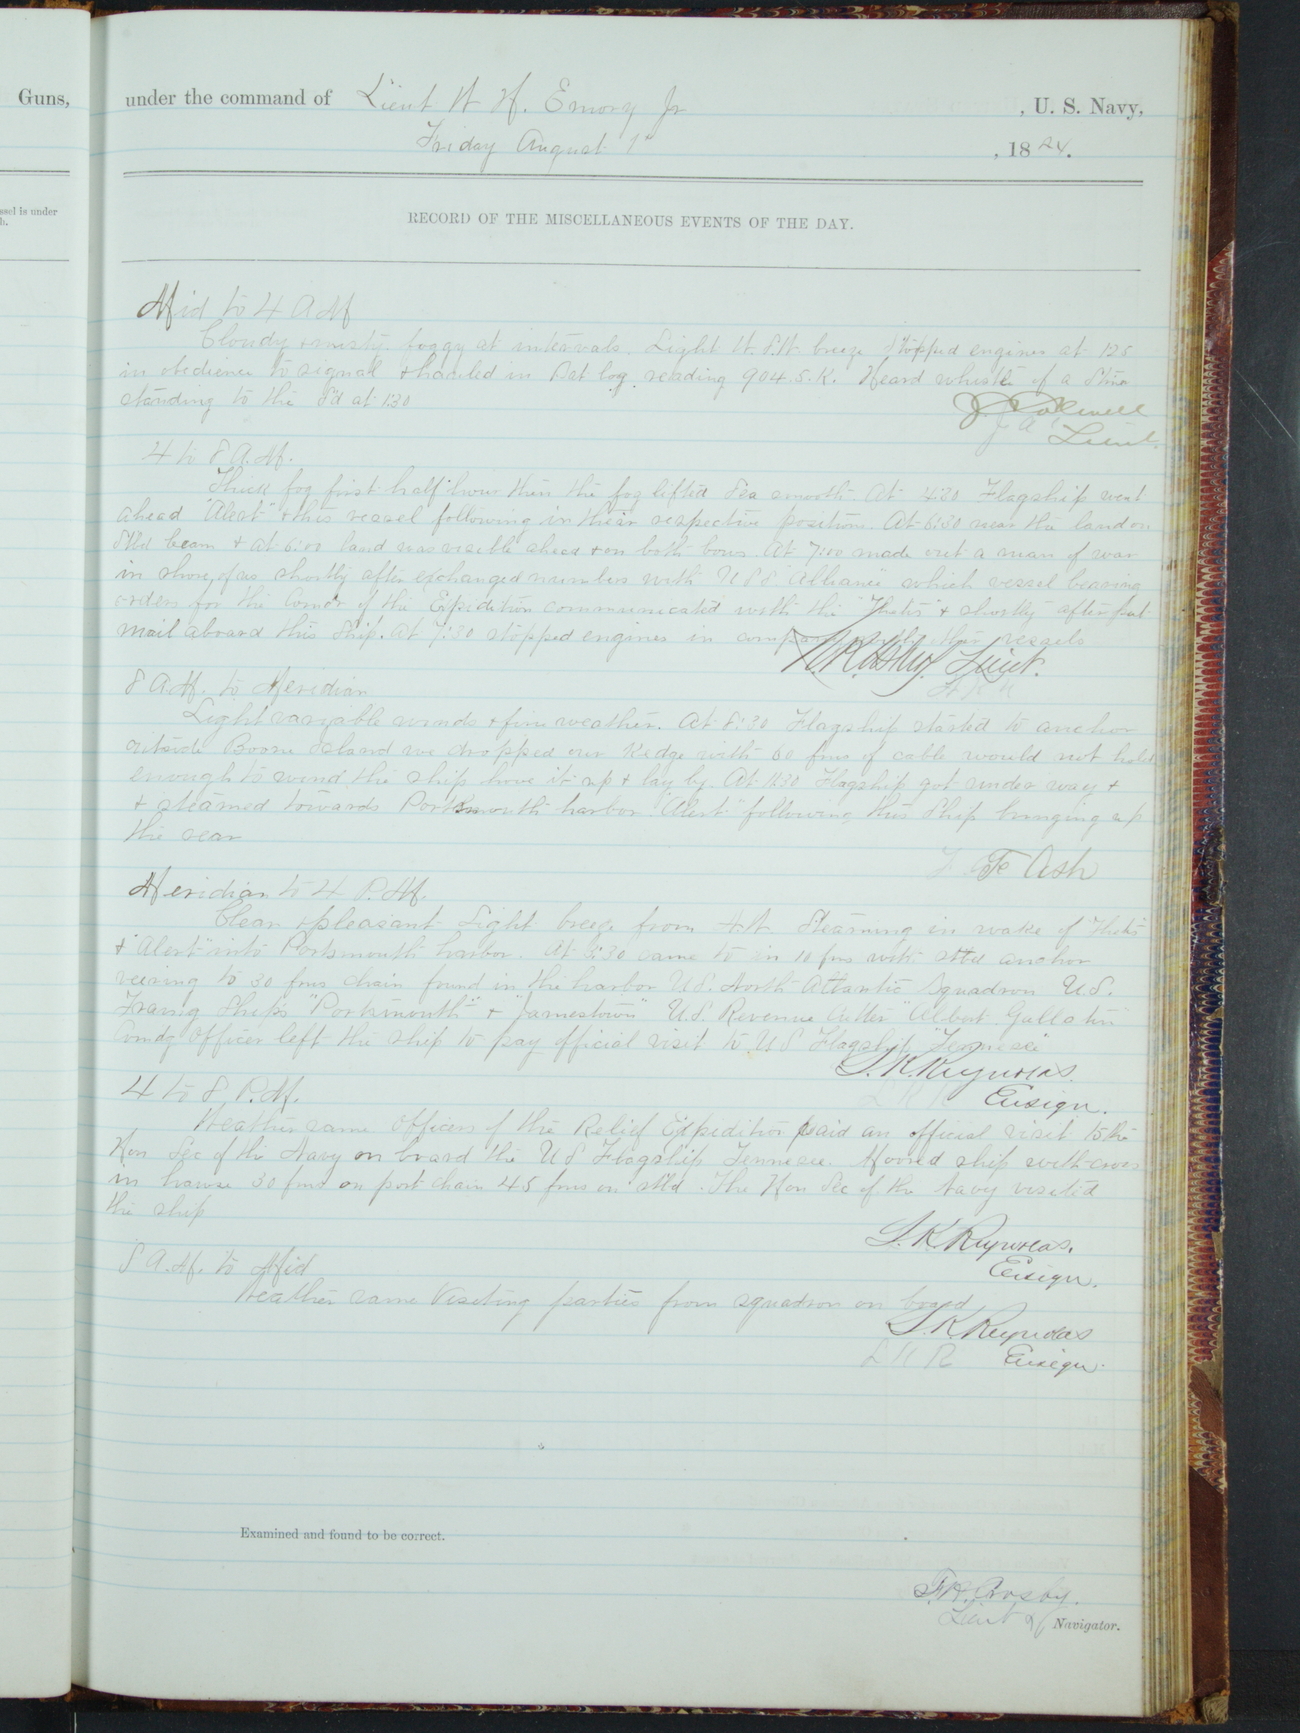 Guns,
under the command of Lieut W H. Emory Jr , U. S. Navy,
Friday August 1st , 1884.
ssel is under
h.
RECORD OF THE MISCELLANEOUS EVENTS OF THE DAY.
Mid to 4 A M
Cloudy & misty. foggy at intervals. Light W.S.W. breeze Stopped engines at 1.25
in obedience to signal & hauled in Pat log reading 904.5.K. Heard whistle of a Stmr
standing to the S'd at 1.30
Lieut.
4 to 8 A.M.
Thick fog first half hour then the fog lifted Sea smooth. At 4:30 Flagship went
ahead "Alert" & this vessel following in their respective positions. At 5:30 near the land on
Stbd beam & at 6:00 land was visible ahead & on both bows. At 7:00 made out a man of war
in shore, of us shortly after exchanged numbers with U S S "Alliance" which vessel bearing
orders for the Comdr of the Expedition communicated with the "Thetis" & shortly after put
mail aboard this Ship. At 7:30 stopped engines in company with other vessels
Lieut.
8 A.M. to Meridian
Light variable winds & fine weather. At 8:30 Flagship started to anchor
outside Boone Island we dropped our Kedge with 60 fms of cable would not hold
enough to wind the ship hove it up & lay by. At 11:30 Flagship got under way &
& steamed towards Portsmouth harbor. "Alert" following this Ship bringing up
the rear
Ash
Meridian to 4 P.M.
Clear & pleasant Light breeze from N.W. Steaming in wake of "Thetis"
& "Alert" into Portsmouth harbor. At 3:30 came to in 10 fms with stbd anchor
veering to 30 fms chain found in the harbor U.S. North Atlantic Squadron U.S.
Traing Ships "Portsmouth" & "Jamestown" U.S. Revenue Cutter "Albert Gallatin"
Comdg Officer left the ship to pay official visit to U S Flagship "Tennessee"
L. K. Reynolds.
L K R Ensign.
4 to 8 P.M.
Weather same Officers of the Relief Expedition paid an official visit to the
Hon Sec of the Navy on board the U S Flagship Tennessee. Moored ship with cross
in hawse 30 fms on port chain 45 fms on stbd. The Hon Sec of the Navy visited
the ship
L. K. Reynolds.
Ensign.
8 A.M. to Mid
Weather same Visiting parties from squadron on board
L K Reynolds
L K R Ensign.
Examined and found to be correct.
F. H. Crosby.
Lieut & Navigator.